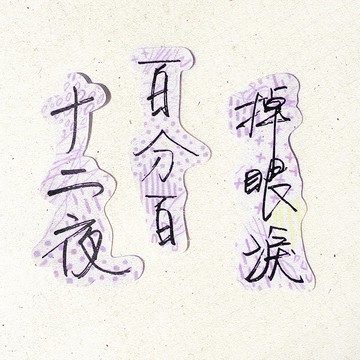 十二夜
百分百
掉眼淚